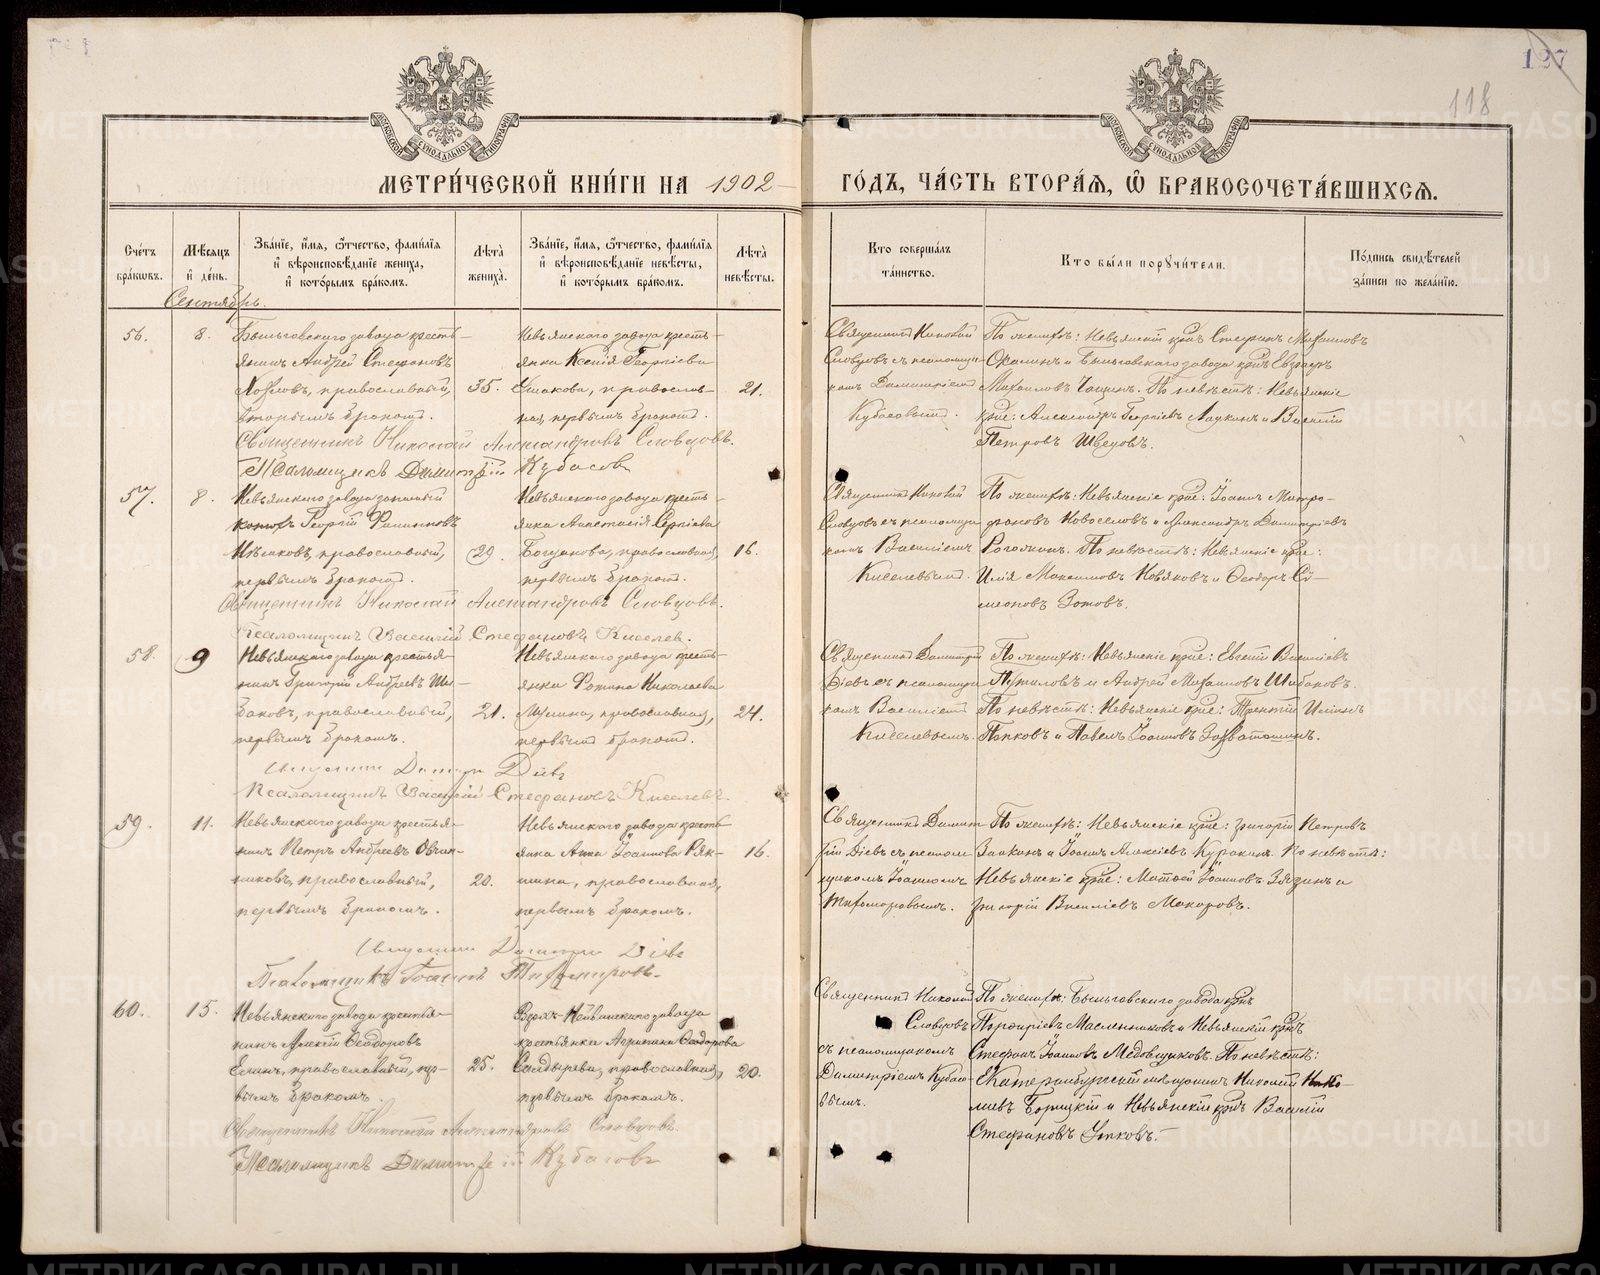 127
118
МЕТРИ́ЧЕСКОЙ КНИ́ГИ НА 1902
ГО́ДЪ, ЧА́СТЬ ВТОРА́Я, Ѡ҆ БРАКОСОЧЕТА́ВШИХСЯ.
Сче́тъ бра́кωвъ.
Мѣ́сяцъ и҆ де́нь.
Зва́нїе, и҆́мя, ѻ҆́тчество, фами́лїя и҆ вѣроисповѣ́данїе жениха̀, и҆ кото́рымъ бра́комъ.
Лѣ́та жениха̀.
Зва́нїе, и҆́мя, ѻ҆́тчество, фами́лїя и҆ вѣроисповѣ́данїе невѣ́сты, и҆ кото́рымъ бра́комъ.
Лѣ́та невѣ́сты.
Кто̀ соверша́лъ та́инство.
Кто̀ бы́ли порꙋчи́тели.
По́дпись свидѣ́телей за́писи по жела́нїю.
Сентябрь.
56.
8.
Быньговскаго завода кресть-
янинъ Андрей Стефановъ
православный,
вторымъ бракомъ.
35.
Невьянскаго завода кресть-
янка Ксенія Георгіева
Ушакова, православ-
ная, первымъ бракомъ.
21.
Священникъ Николай
Словцовъ съ псаломщи-
комъ Димитріемъ
Кубасовымъ.
По женихѣ: Невьянскій кр-нъ Стефанъ Михаиловъ
и Быньговскаго завода кр-нъ Евграфъ
Михаиловъ По невѣстѣ: Невьянскіе
кр-не: Александръ Георгіевъ и Василій
Петровъ Швецовъ.
Священникъ Николай Александровъ Словцовъ.
Псаломщикъ Димитрій Кубасовъ
57.
8.
Невьянскаго завода
Георгій Филипповъ
православный,
первымъ бракомъ.
22.
Невьянскаго завода кресть-
янка Анастасія Сергіева
Богданова, православная,
первымъ бракомъ.
16.
Священникъ Николай
Словцовъ съ псаломщи-
комъ Василіемъ
Киселевымъ.
По женихѣ: Невьянскіе кр-не: Іоаннъ Митро-
фановъ Новоселовъ и Александръ Димитріевъ
По невѣстѣ: Невьянскіе кр-не:
Илія Максимовъ и Ѳеодоръ Си-
меоновъ Зотовъ.
Священникъ Николай Александровъ Словцовъ.
Псаломщикъ Василій Стефановъ Киселевъ.
58.
9
Невьянскаго завода крестья-
нинъ Григорій Андреевъ Ши-
баковъ, православный,
первымъ бракомъ.
21.
Невьянскаго завода кресть-
янка Фотина Николаева
православная,
первымъ бракомъ.
24.
Священникъ Димитрій
Діевъ съ псаломщи-
комъ Василіемъ
Киселевымъ.
По женихѣ: Невьянскіе кр-не: Евгеній Василіевъ
Путиловъ и Андрей Михаиловъ Шибаковъ.
По невѣстѣ: Невьянскіе кр-не: Терентій
Попковъ и Павелъ Іоанновъ
Священникъ Димитрій Діевъ
Псаломщикъ Василій Стефановъ Киселевъ.
59.
11.
Невьянскаго завода крестья-
нинъ Петръ Андреевъ Овчин-
никовъ, православный,
первымъ бракомъ.
20.
Невьянскаго завода кресть-
янка Анна Іоаннова Ряк-
шина, православная,
первымъ бракомъ.
16.
Священникъ Димит-
рій Діевъ съ псалом-
щикомъ Іоанномъ
Тихоміровымъ.
По женихѣ: Невьянскіе кр-не: Григорій Петровъ
и Іоаннъ Алексіевъ Куракинъ. По невѣстѣ:
Невьянскіе кр-не: Матѳей Іоанновъ и
Григорій Василіевъ Макаровъ.
Священникъ Димитрій Діевъ
Псаломщикъ Іоаннъ Тихоміровъ.
60.
15.
Невьянскаго завода крестья-
нинъ Алексій Ѳеодоровъ
православный, пер-
вымъ бракомъ.
25.
Верхъ-Нейвинскаго завода
крестьянка Агрипина Ѳеодорова
православная,
первымъ бракомъ.
20.
Священникъ Николай
Словцовъ
съ псаломщикомъ
Димитріемъ Кубасо-
вымъ.
По женихѣ: Быньговскаго завода кр-нъ
Порфиріевъ Масленниковъ и Невьянскій кр-нъ
Стефанъ Іоанновъ Медовщиковъ. По невѣстѣ:
Екатеринбургскій мѣщанинъ Николай Нико-
лаевъ и Невьянскій кр-нъ Василій
Стефановъ
Священникъ Николай Александровъ Словцовъ.
Псаломщикъ Димитрій Кубасовъ
METRIKI.GASO-URAL.RU